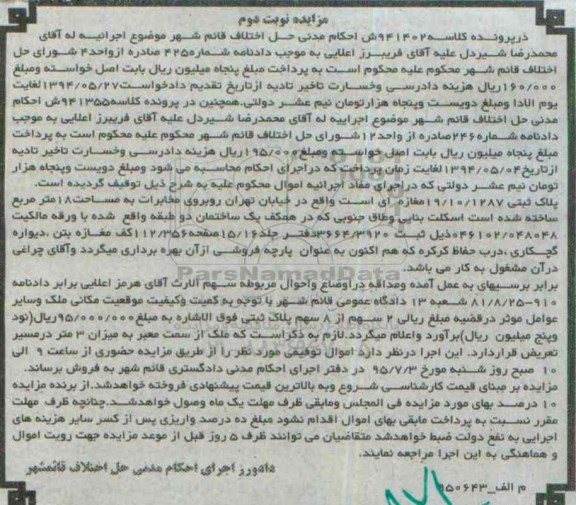 مزایده نوبت دوم
درپرونده کلاسه۹۴۱۴۰۲ش احکام مدنی حل اختلاف قائم شهر موضوع اجرائیه له آقای
محمدرضا شیردل علیه آقای فریبرز اعلایی به موجب دادنامه شماره۴۲۵ صادره ازواحد۴ شورای حل
اختلاف قائم شهر محکوم علیه محکوم است به پرداخت مبلغ پنجاه میلیون ریال بابت اصل خواسته ومبلغ
۱۶۰/۰۰۰ریال هزینه دادرسی وخسارت تاخیر تادیه ازتاریخ تقدیم دادخواست۱۳۹۴/۰۵/۲۷لغایت
یوم الادا ومبلغ دویست وپنجاه هزارتومان نیم عشر دولتی.همچنین در پرونده کلاسه۹۴۱۳۵۵ش احکام
مدنی حل اختلاف قائم شهر موضوع اجراییه له آقای محمدرضا شیردل علیه آقای فریبرز اعلایی به موجب
دادنامه شماره۲۴۶صادره از واحد۱۲شورای حل اختلاف قائم شهر محکوم علیه محکوم است به پرداخت
مبلغ پنجاه میلیون ریال بابت اصل خواسته ومبلغ۱۹۵/۰۰۰ریال هزینه دادرسی وخسارت تاخیر تادیه
ازتاریخ۱۳۹۴/۰۵/۰۴لغایت زمان پرداخت که دراجرای احکام محاسبه می شود ومبلغ دویست وپنجاه هزار
تومان نیم عشر دولتی که دراجرای مفاد اجرائیه اموال محکوم علیه به شرح ذیل توقیف گردیده است.
پلاک ثبتی ۱۹/۱۰/۱۲۸۷مغازه ای است واقع در خیابان تهران روبروی مخابرات به مساحت۱۸متر مربع
ساخته شده است اسکلت بنایی وطاق جنوبی که در همکف یک ساختمان دو طبقه واقع شده با ورقه مالکیت
۰۴۶۱۰۲/۰۴۸۰۴۸ذیل ثبت ۳۶۶۴/۳۹۲۰ دفتر جلد۱۵/۱۶صفحه۱۱۲/۳۵۶کف مغازه بتن ،دیواره
گچکاری ،درب حفاظ کرکره که هم اکنون به عنوان پارچه فروشی ازآن بهره برداری میگردد وآقای چراغی
درآن مشغول به کار می باشد.
برابر بررسیهای به عمل آمده ومداقه دراوضاع واحوال مربوطه سهم آلارث آقای هرمز اعلایی برابر دادنامه
۹۱۰-۸۱/۸/۲۵ شعبه ۱۳ دادگاه عمومی قائم شهر با توجه به کمیت وکیفیت موقعیت مکانی ملک وسایر
عوامل موثر درقضیه مبلغ ریالی ۲ سهم از ۸ سهم پلاک ثبتی فوق الاشاره به مبلغ۹۵/۰۰۰/۰۰۰ریال(نود
وپنج میلیون ریال)برآورد واعلام میگردد.لازم به ذکراست که ملک از سمت معبر به میزان ۳ متر درمسیر
تعریض قراردارد. این اجرا درنظر دارد اموال توقیفی مورد نظر را از طریق مزایده حضوری از ساعت ۹ الی
۱۰ صبح روز شنبه مورخ ۹۵/۷/۳ در دفتر اجرای احکام مدنی دادگستری قائم شهر به فروش برساند.
مزایده بر مبنای قیمت کارشناسی شروع وبه بالاترین قیمت پیشنهادی فروخته خواهدشد.از برنده مزایده
۱۰ درصد بهای مورد مزایده فی المجلس ومابقی ظرف مهلت یک ماه وصول خواهدشد.چنانچه ظرف مهلت
مقرر نسبت به پرداخت مابقی بهای اموال اقدام نشود مبلغ ده درصد واریزی پس از کسر سایر هزینه های
اجرایی به نفع دولت ضبط خواهدشد متقاضیان می توانند ظرف ۵ روز قبل از موعد مزایده جهت رویت اموال
و هماهنگی به این اجرا مراجعه نمایند.
دادورز اجرای احکام مدنی حل اختلاف قائمشهر
م الف_۹۵۰۶۴۳
ParsNamadData